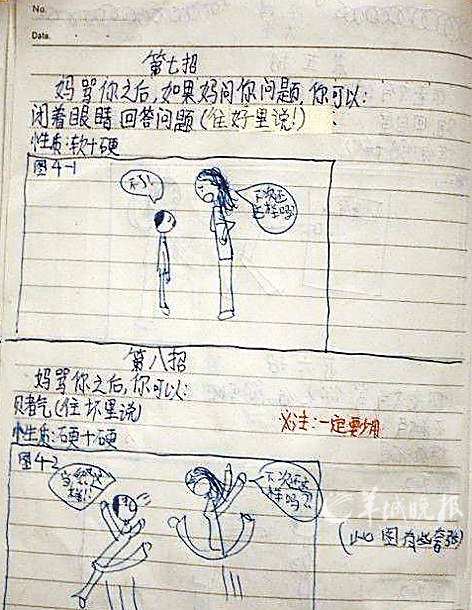 No.
Date.
第七招
妈骂你之后,如果妈问你问题,你可以:
闭着眼睛回答问题(往好里说!)
性质:软+硬
图4-1
不了!
下次还
这样吗?
第八招
妈骂你之后,你可以:
赌气(往坏里说)
性质:硬+硬
※注:一定要少用
图4-2
当然这
样!!
下次还这
样吗?!
羊城晚报
图有些夸张)